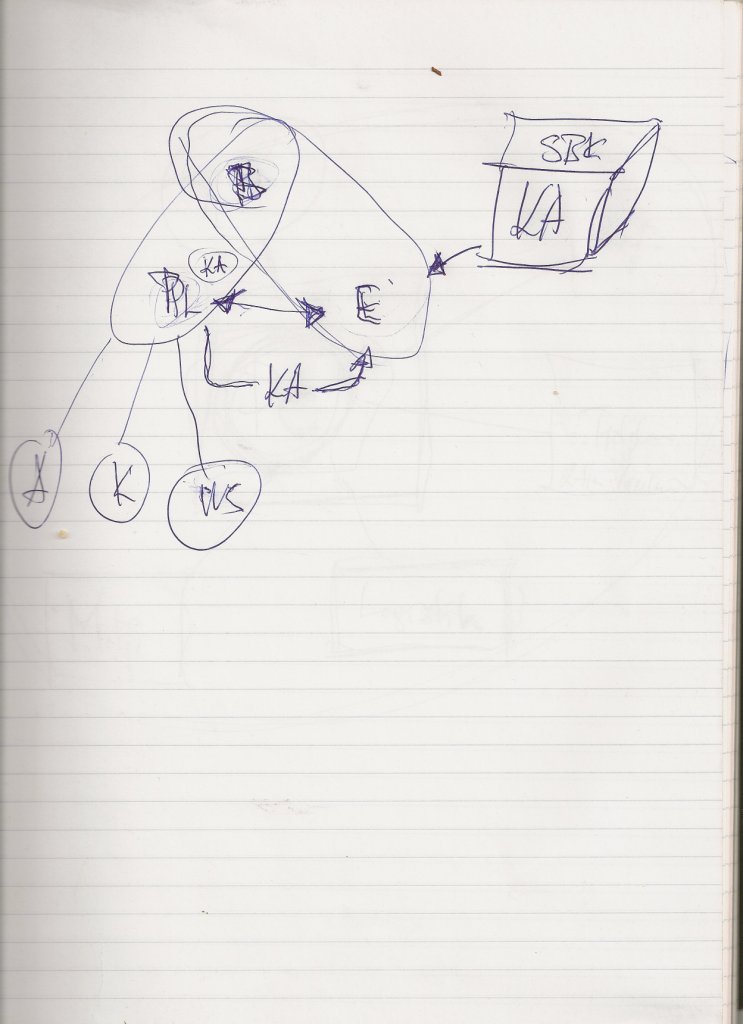 SBK
B
KA
KA
PL
E
KA
A
K
WS